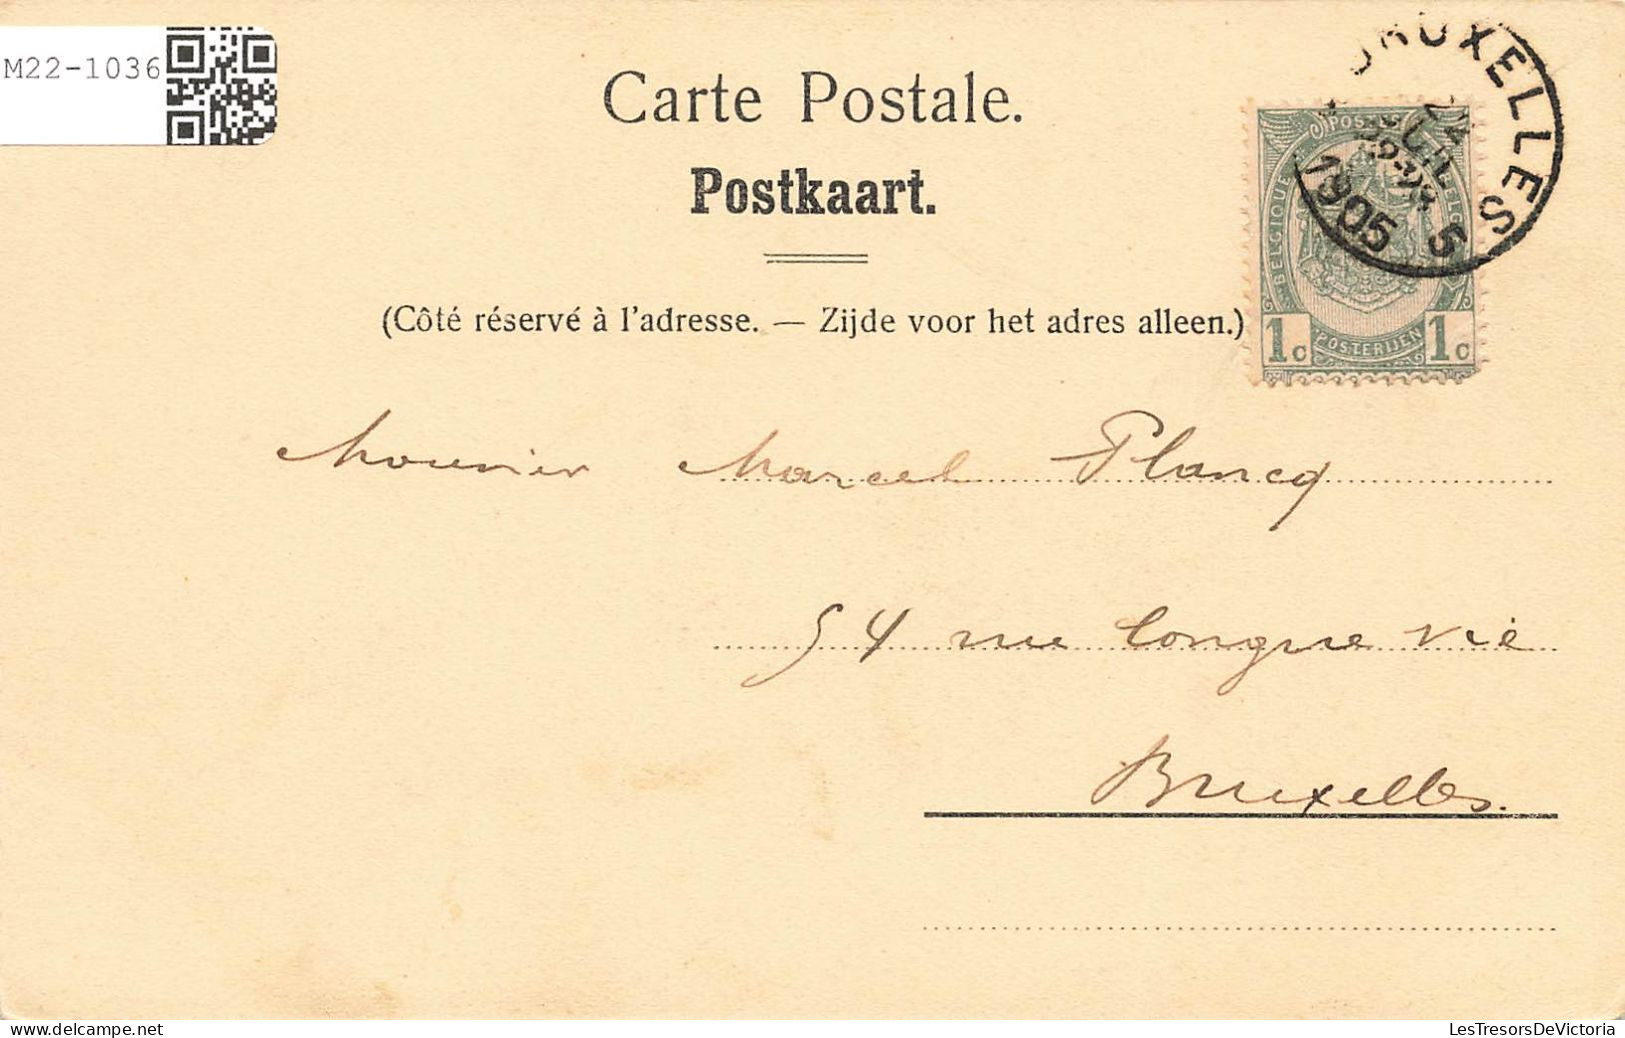 M22-1036
Carte Postale.
Postkaart.
(Côté réservé à l'adresse. — Zijde voor het adres alleen.)
BRUXELLES 5
22 JUIL
1905
POSTES
BELGIQUE
BELGIË
1c POSTERIJEN 1c
Monsieur Marcel Plancq
54 rue longue vie
Bruxelles.
www.delcampe.net
LesTresorsDeVictoria